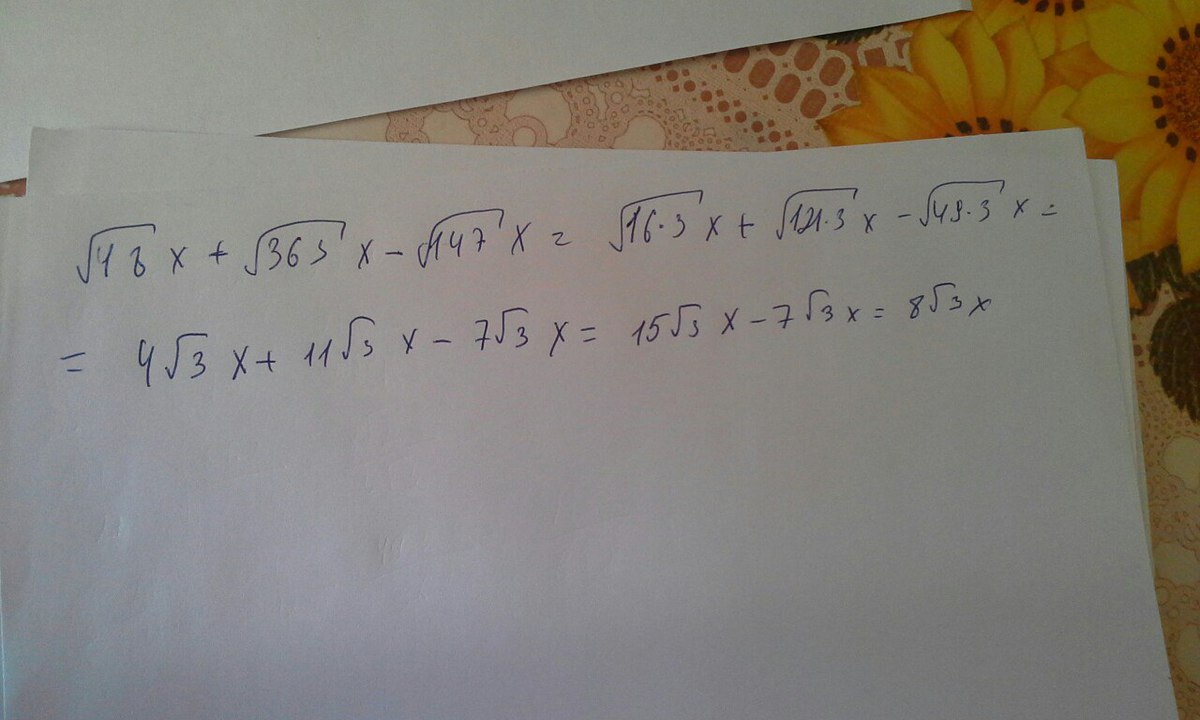 √48 x + √363 x - √147 x = √16·3 x + √121·3 x - √49·3 x =
= 4√3 x + 11√3 x - 7√3 x = 15√3 x - 7√3 x = 8√3 x